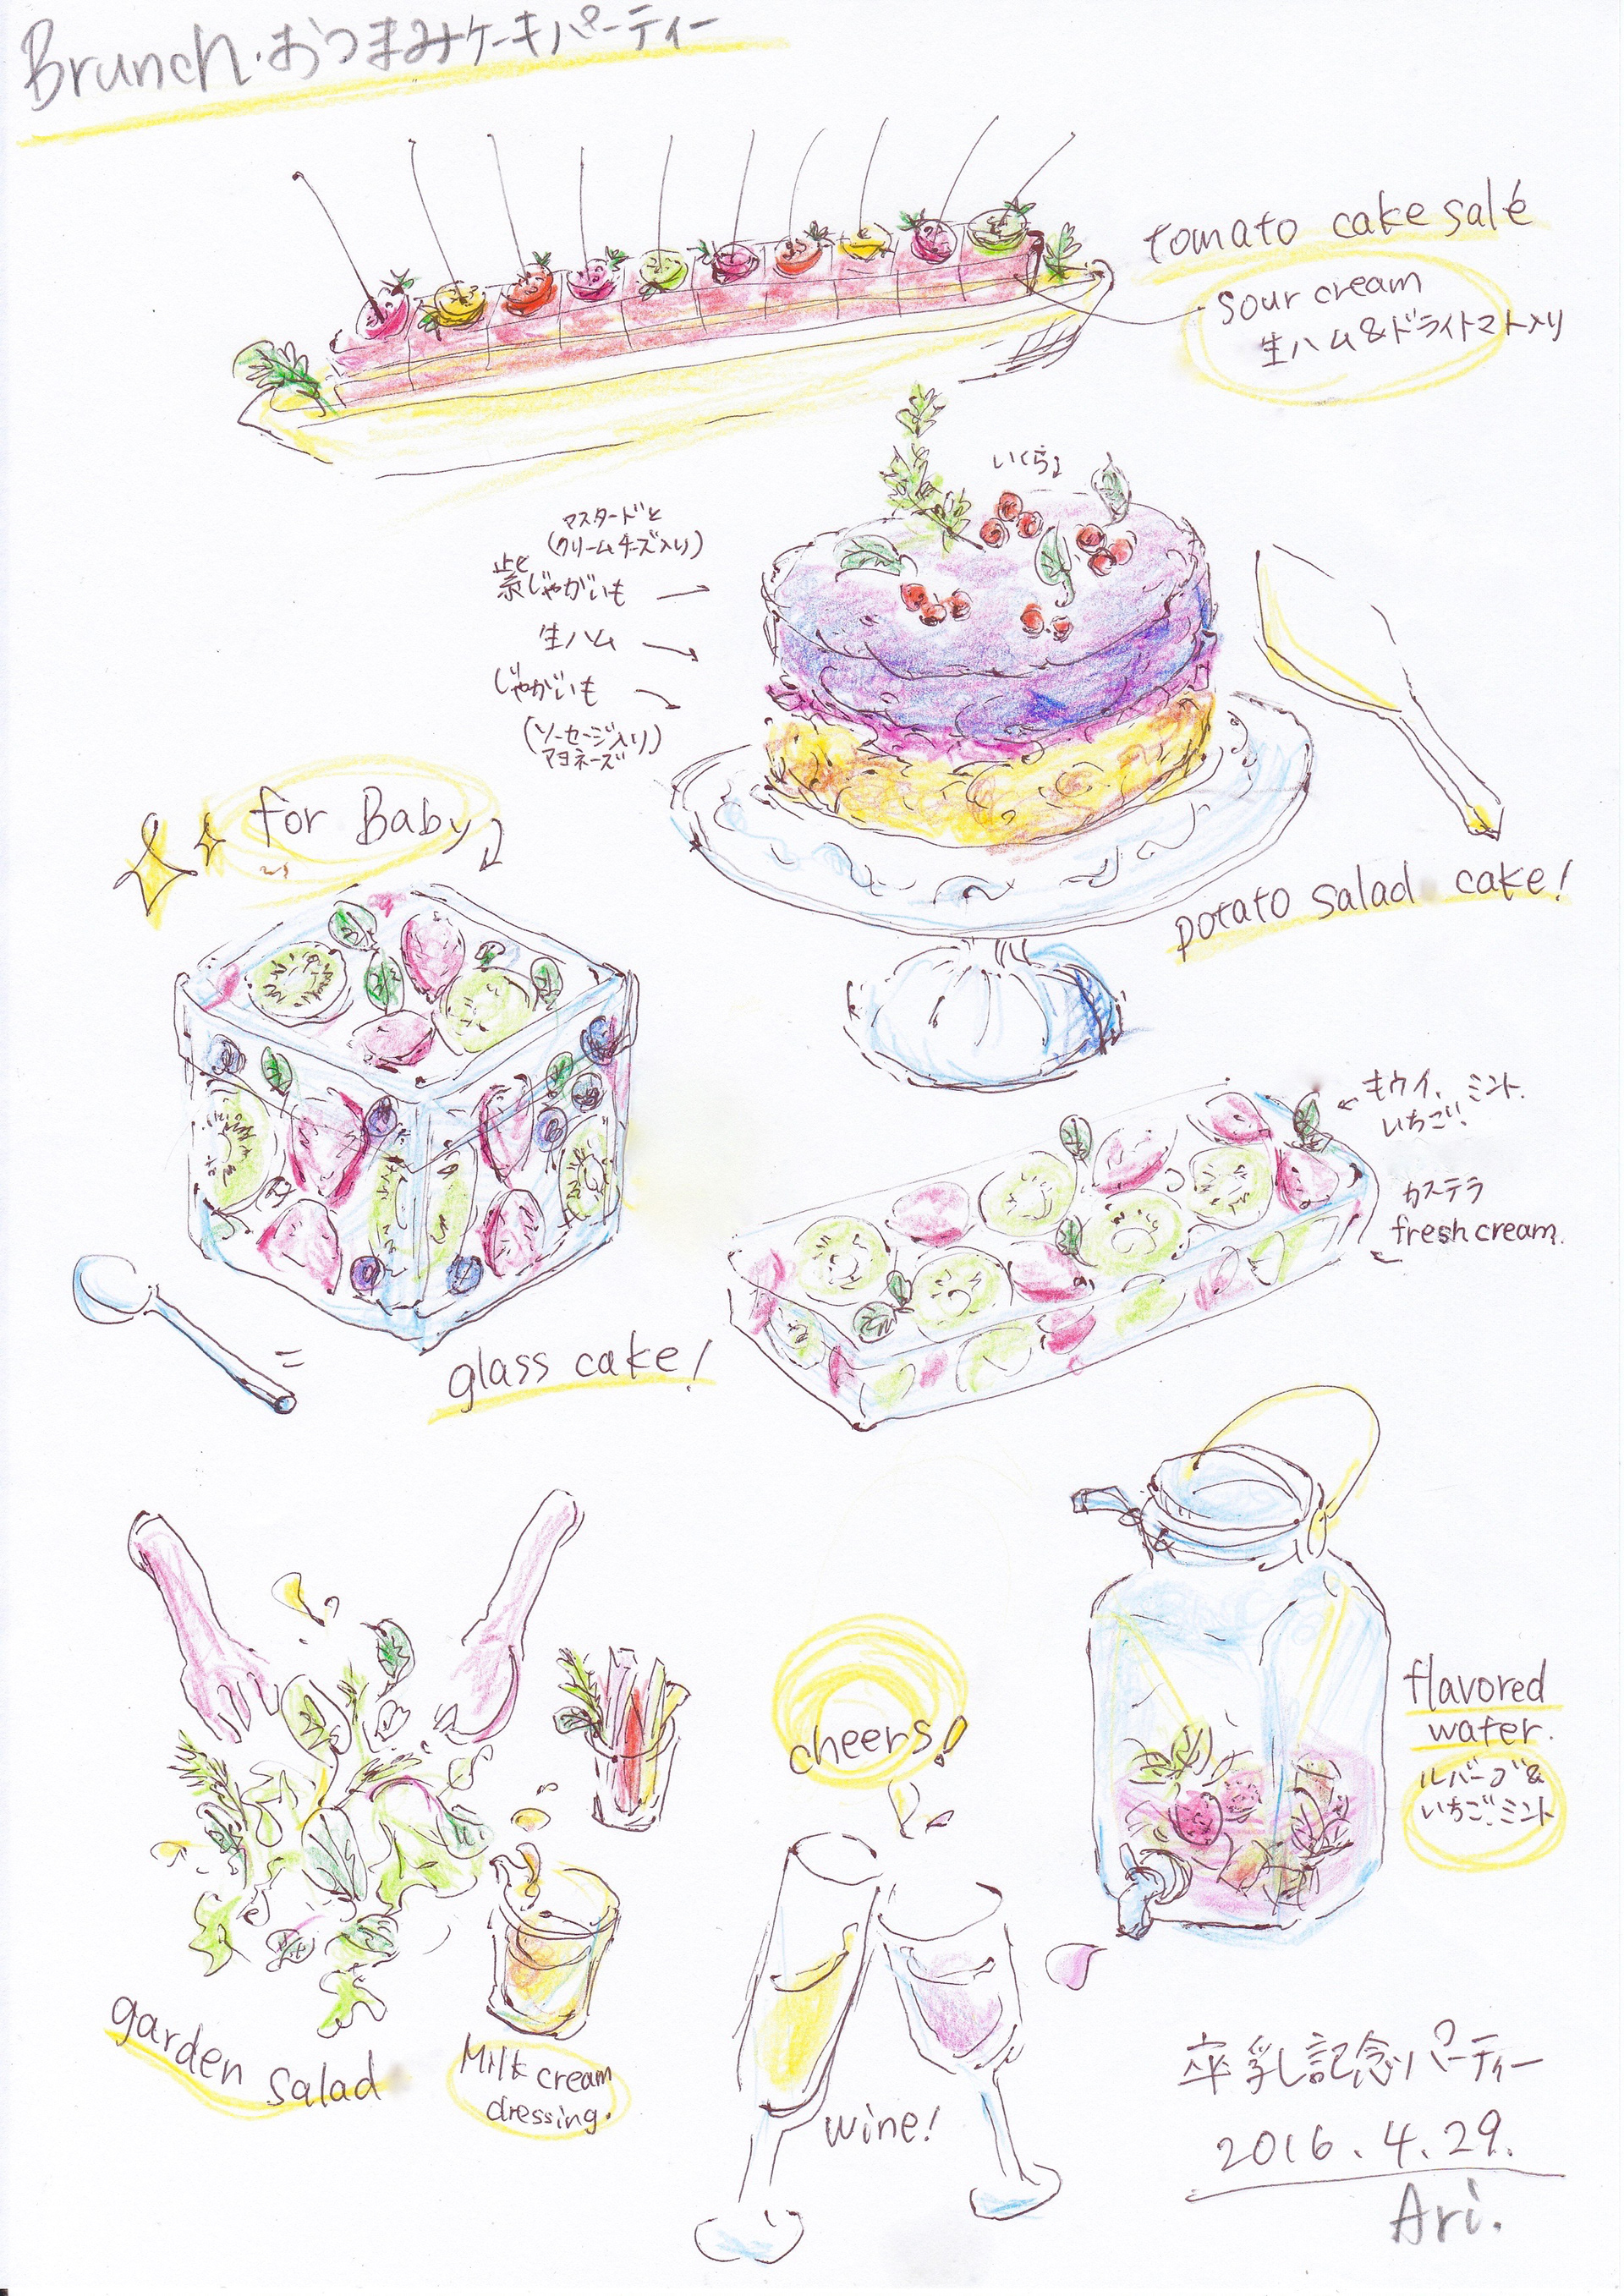 Brunch・おつまみケーキパーティー
tomato cake salé
sour cream
生ハム&ドライトマト入り
いくら
マスタードと
(クリームチーズ入り)
紫じゃがいも
生ハム
じゃがいも
(ソーセージ入り)
マヨネーズ
potato salad cake!
for Baby
glass cake!
キウイ、ミント.
いちご!
カステラ
fresh cream.
garden salad
Milk cream
dressing.
cheers!
wine!
flavored
water.
ルバーブ&
いちご、ミント
卒乳記念パーティー
2016.4.29.
Ari.